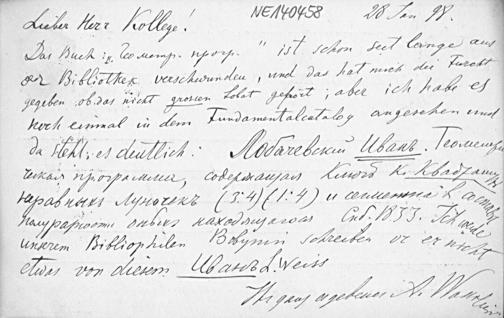 NE140458
28 Jan 98.
Lieber Herr Kollege!
Das Buch: „Геометр. прогр." ist schon seit lange aus
der Bibliothek verschwunden, und das hat mich die Furcht
gegeben, ob das nicht grossen Lobat gehört; aber ich habe es
noch einmal in dem Fundamentalcatalog angesehen und
da steht es deutlich: Лобачевскій Иванъ. Геометри-
ческая программа, содержащая ключъ къ Квадратур
неравныхъ луночекъ (3:4) (1:4) и сегмента
оныхъ находящагося Спб. 1833. Ich werde
unserem Bibliophilen Bobynin schreiben ob er nicht
etwas von diesem Иванъ L. weiss
Ihr ganz ergebener A. Wassiliew